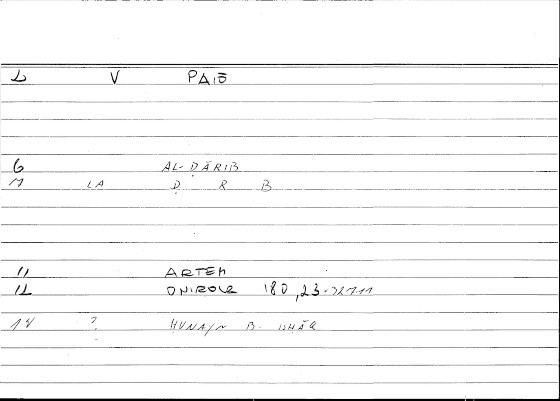 2 V PAIŌ
6 AL-ḌĀRIB
7 LA Ḍ R B
11 ARTEM
12 ONIROCR 180,23
14 ? ḤUNAYN B. ISḤĀQ